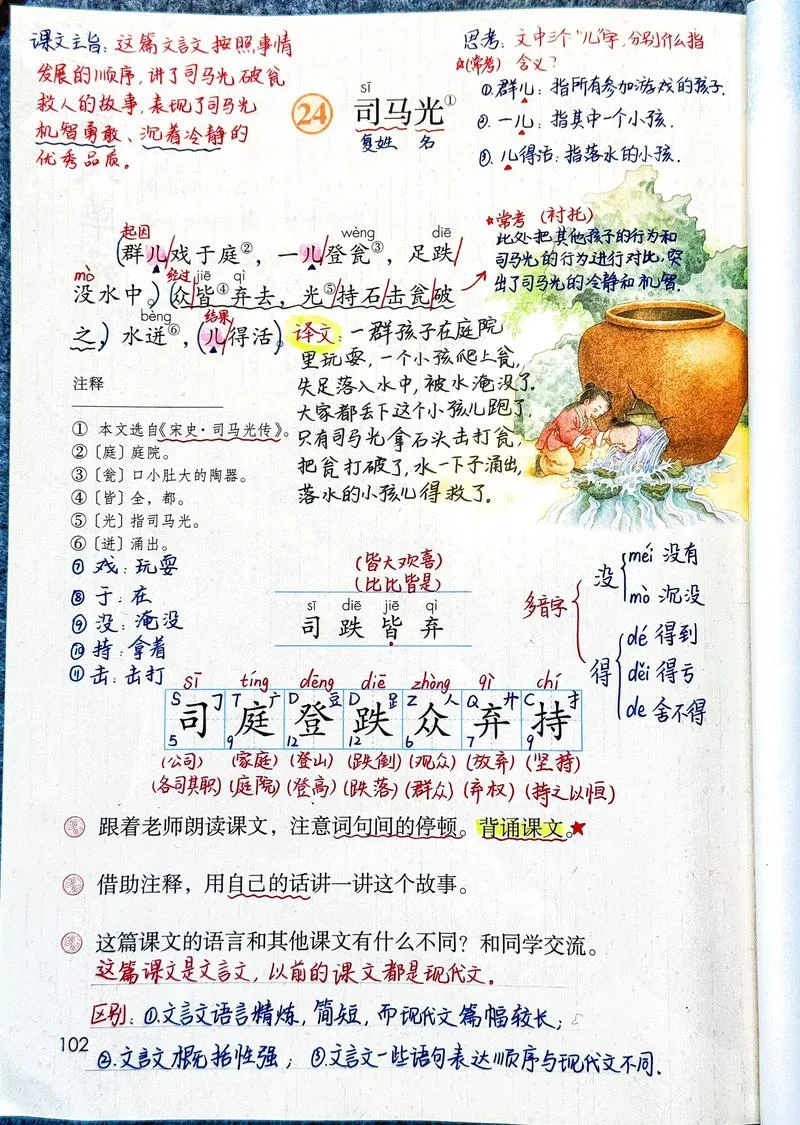 课文主旨：这篇文言文按照事情
发展的顺序，讲了司马光破瓮
救人的故事，表现了司马光
机智勇敢、沉着冷静的
优秀品质。
sī
24 司马光①
复姓 名
思考：文中三个"儿"字，分别什么指
☆(常考) 含义？
①群儿：指所有参加游戏的孩子.
②一儿：指其中一个小孩.
③儿得活：指落水的小孩.
★常考 (衬托)
此处把其他孩子的行为和
司马光的行为进行对比，突
出了司马光的冷静和机智.
起因 wèng diē
(群儿/戏于庭②，一儿/登瓮③，足跌/
mò 经过 jiē qì
没水中。)(众/皆④弃去，光⑤/持石/击瓮/破
bèng 结果
之，水迸⑥，(儿/得活。)
译文：一群孩子在庭院
里玩耍，一个小孩爬上瓮，
失足落入水中，被水淹没了.
大家都丢下这个小孩儿跑了，
只有司马光拿石头击打瓮，
把瓮打破了，水一下子涌出，
落水的小孩儿得救了.
注释
① 本文选自《宋史·司马光传》。
②〔庭〕庭院。
③〔瓮〕口小肚大的陶器。
④〔皆〕全，都。
⑤〔光〕指司马光。
⑥〔迸〕涌出。
⑦ 戏：玩耍
⑧ 于：在
⑨ 没：淹没
⑩ 持：拿着
⑪ 击：击打
(皆大欢喜)
(比比皆是)
sī diē jiē qì
司 跌 皆 弃
多音字
没 méi 没有
mò 沉没
得 dé 得到
děi 得亏
de 舍不得
sī tíng dēng diē zhòng qì chí
S ㇆ T 广 D 豆 D 𧾷 Z 人 Q 廾 C 扌
司 庭 登 跌 众 弃 持
5 9 12 12 6 7 9
(公司) (家庭) (登山) (跌倒) (观众) (放弃) (坚持)
(各司其职) (庭院) (登高) (跌落) (群众) (弃权) (持之以恒)
跟着老师朗读课文，注意词句间的停顿。背诵课文。★
借助注释，用自己的话讲一讲这个故事。
这篇课文的语言和其他课文有什么不同？和同学交流。
这篇课文是文言文，以前的课文都是现代文.
区别：①.文言文语言精炼，简短，而现代文篇幅较长；
②.文言文概括性强；③.文言文一些语句表达顺序与现代文不同.
102